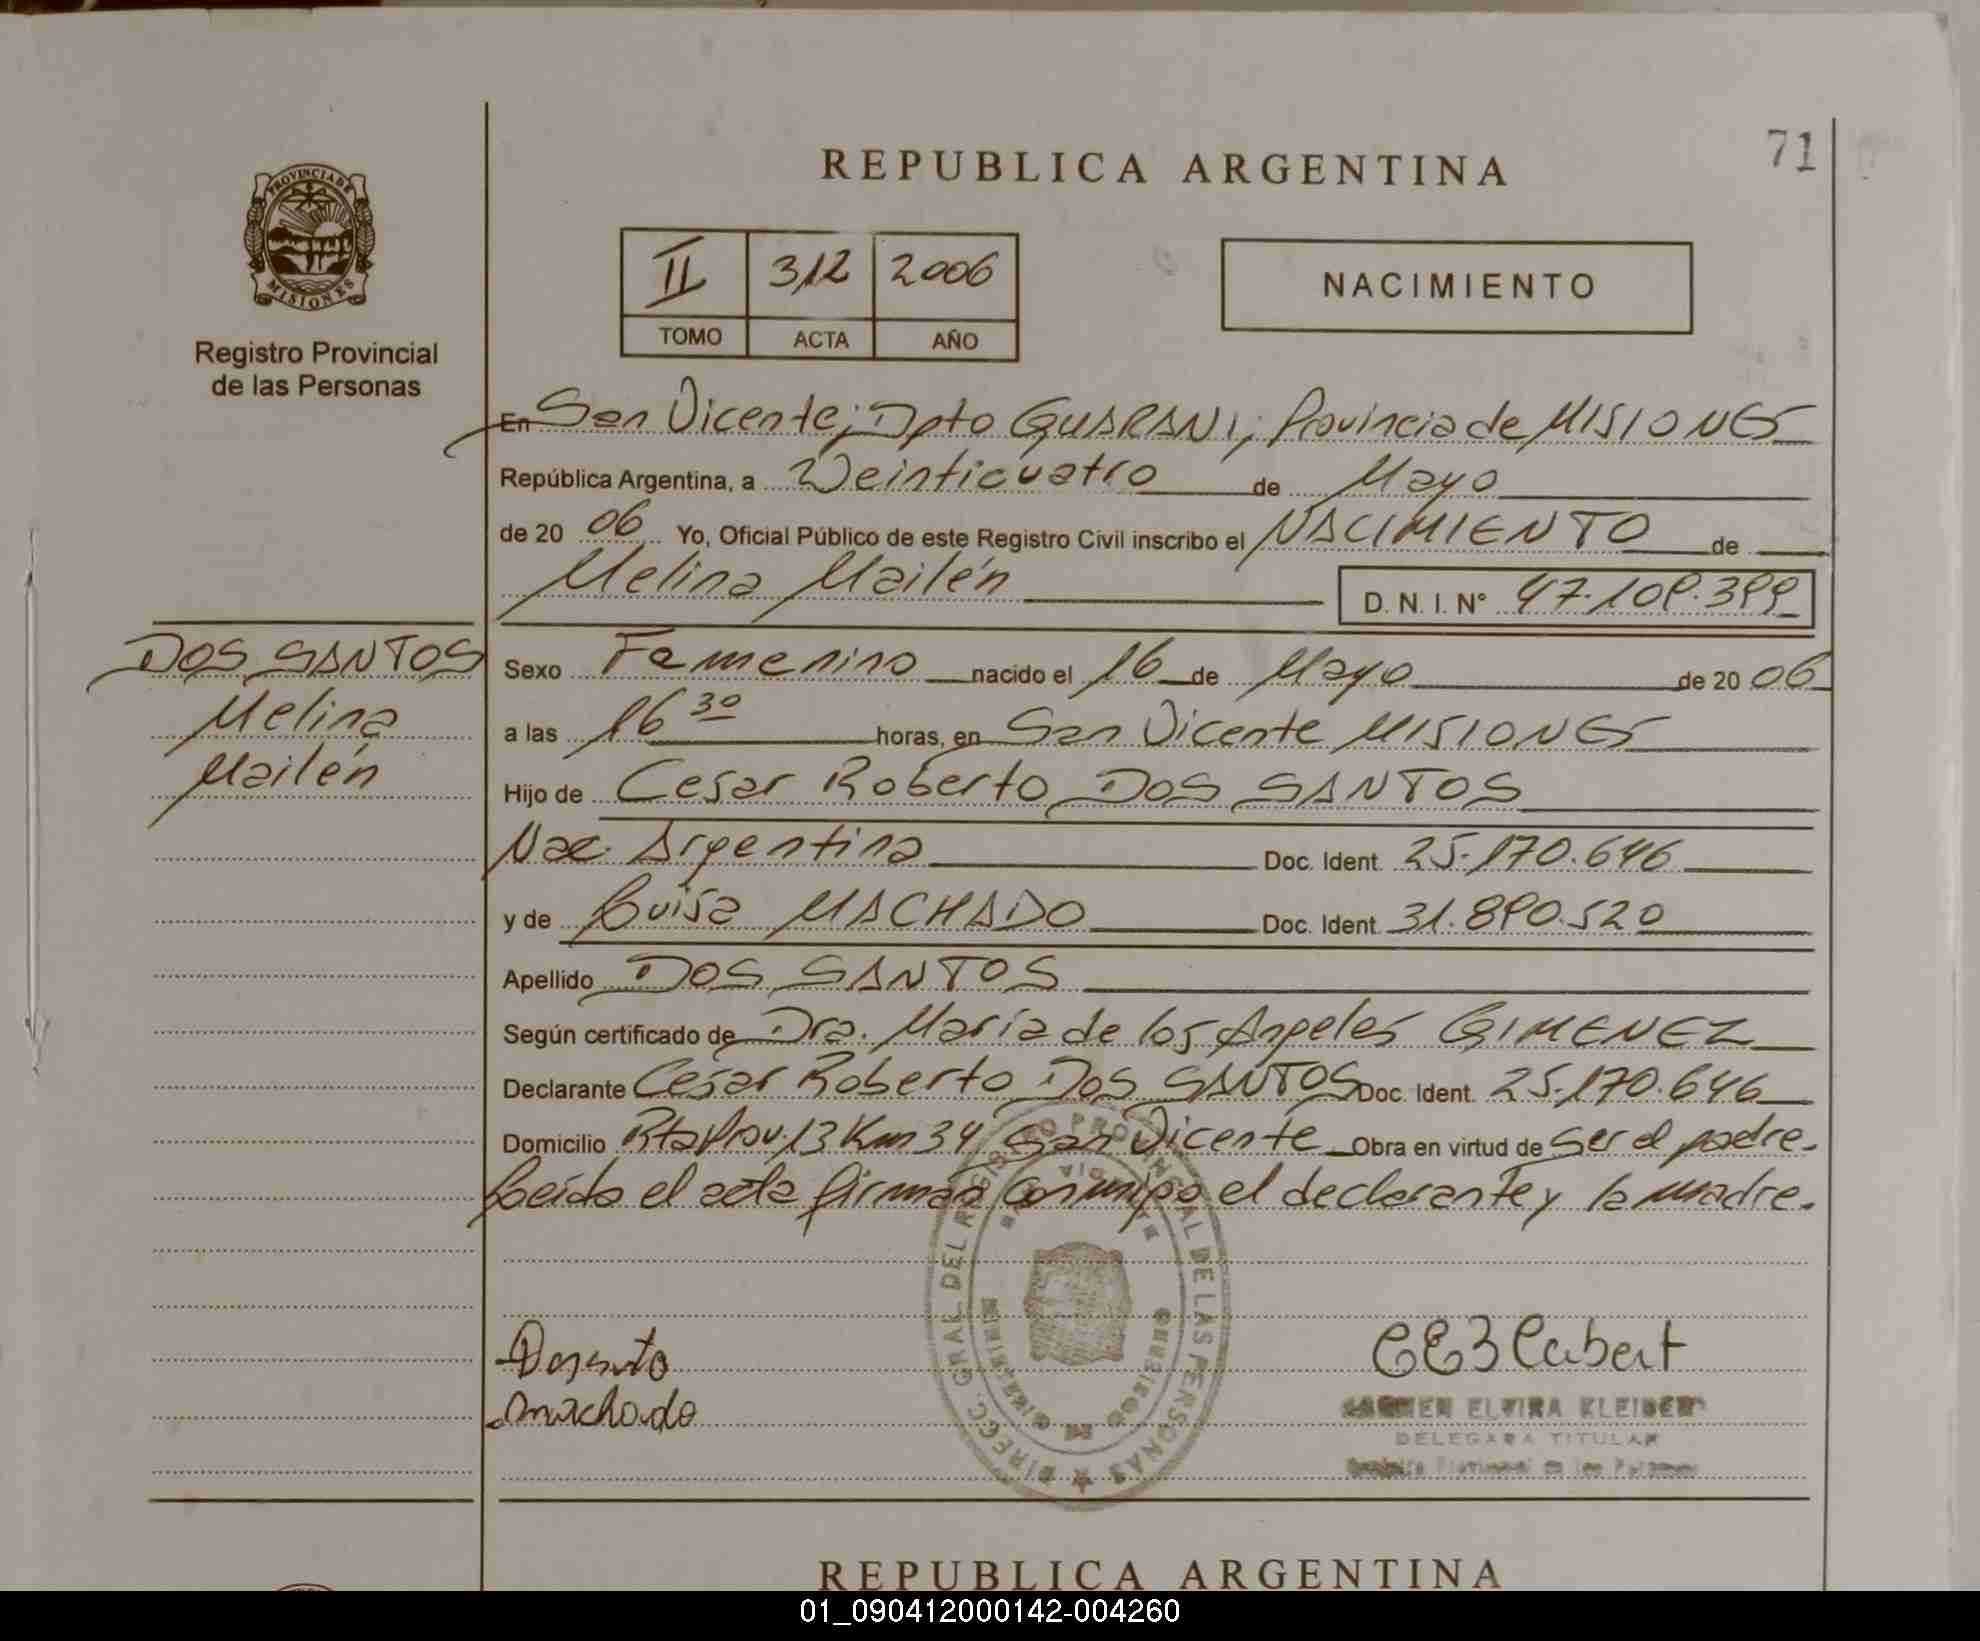 REPUBLICA ARGENTINA
71
PROVINCIA DE
MISIONES
Registro Provincial
de las Personas
II 312 2006
TOMO ACTA AÑO
NACIMIENTO
En San Vicente; Dpto GUARANI; Provincia de MISIONES
República Argentina, a Veinticuatro de Mayo
de 20 06 Yo, Oficial Público de este Registro Civil inscribo el NACIMIENTO de
Melina Mailén D. N. I. N°
DOS SANTOS
Melina
Mailén
Sexo Femenino nacido el 16 de Mayo de 20 06
a las 16 30 horas, en San Vicente MISIONES
Hijo de Cesar Roberto DOS SANTOS
Nac. Argentina Doc. Ident. 25.170.646
y de Luisa MACHADO Doc. Ident. 31.890.520
Apellido DOS SANTOS
Según certificado de Dra. María de los Angeles GIMENEZ
Declarante Cesar Roberto DOS SANTOS Doc. Ident. 25.170.646
Domicilio Rta Prov. 13 Km 34 San Vicente Obra en virtud de ser el padre.
Leída el acta firman conmigo el declarante y la madre.
DIRECC. GRAL DEL REGISTRO PROVINCIAL DE LAS PERSONAS
machado
CARMEN ELVIRA
DELEGADA TITULAR
REPUBLICA ARGENTINA
01_090412000142-004260